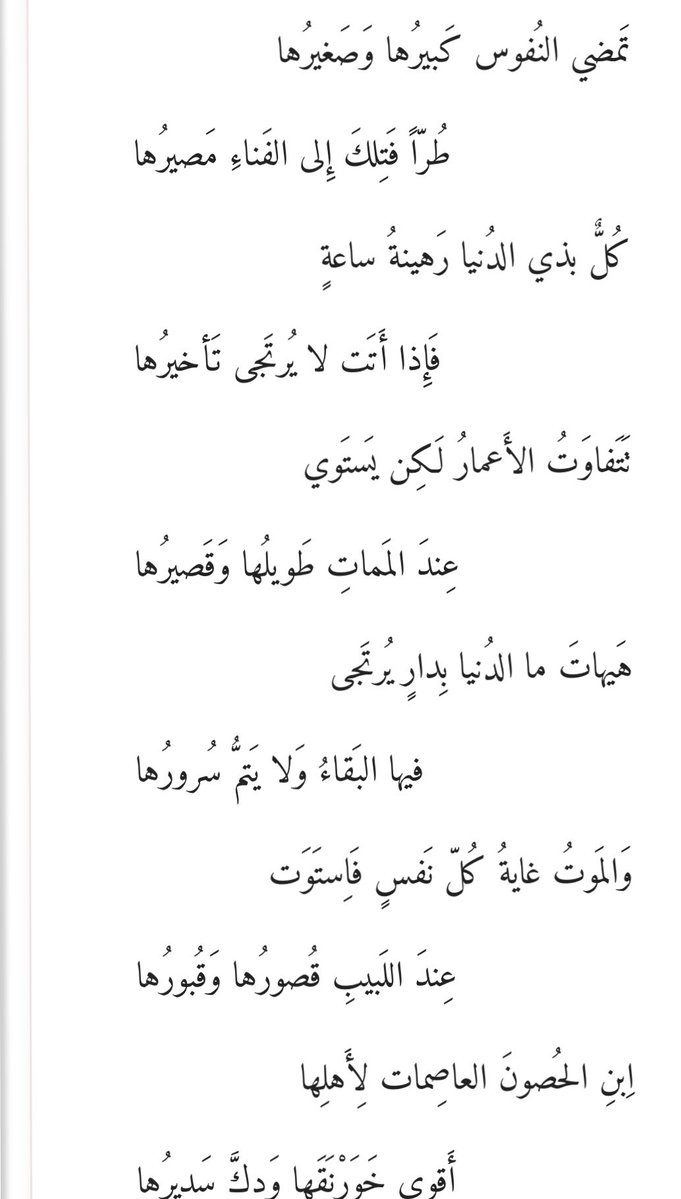 تَمضي النُفوس كَبيرُها وَصَغيرُها
طُرّاً فَتِلكَ إِلى الفَناءِ مَصيرُها
كُلٌّ بذي الدُنيا رَهينةُ ساعةٍ
فَإِذا أَتَت لا يُرتَجى تَأخيرُها
تَتَفاوَتُ الأَعمارُ لَكِن يَستَوي
عِندَ المَماتِ طَويلُها وَقَصيرُها
هَيهاتَ ما الدُنيا بِدارٍ يُرتَجى
فيها البَقاءُ وَلا يَتمُّ سُرورُها
وَالمَوتُ غايةُ كُلّ نَفسٍ فَاِستَوَت
عِندَ اللَبيبِ قُصورُها وَقُبورُها
اِبنِ الحُصونَ العاصِمات لِأَهلِها
أَقوى خَوَرْنَقَها وَدكَّ سَديرُها